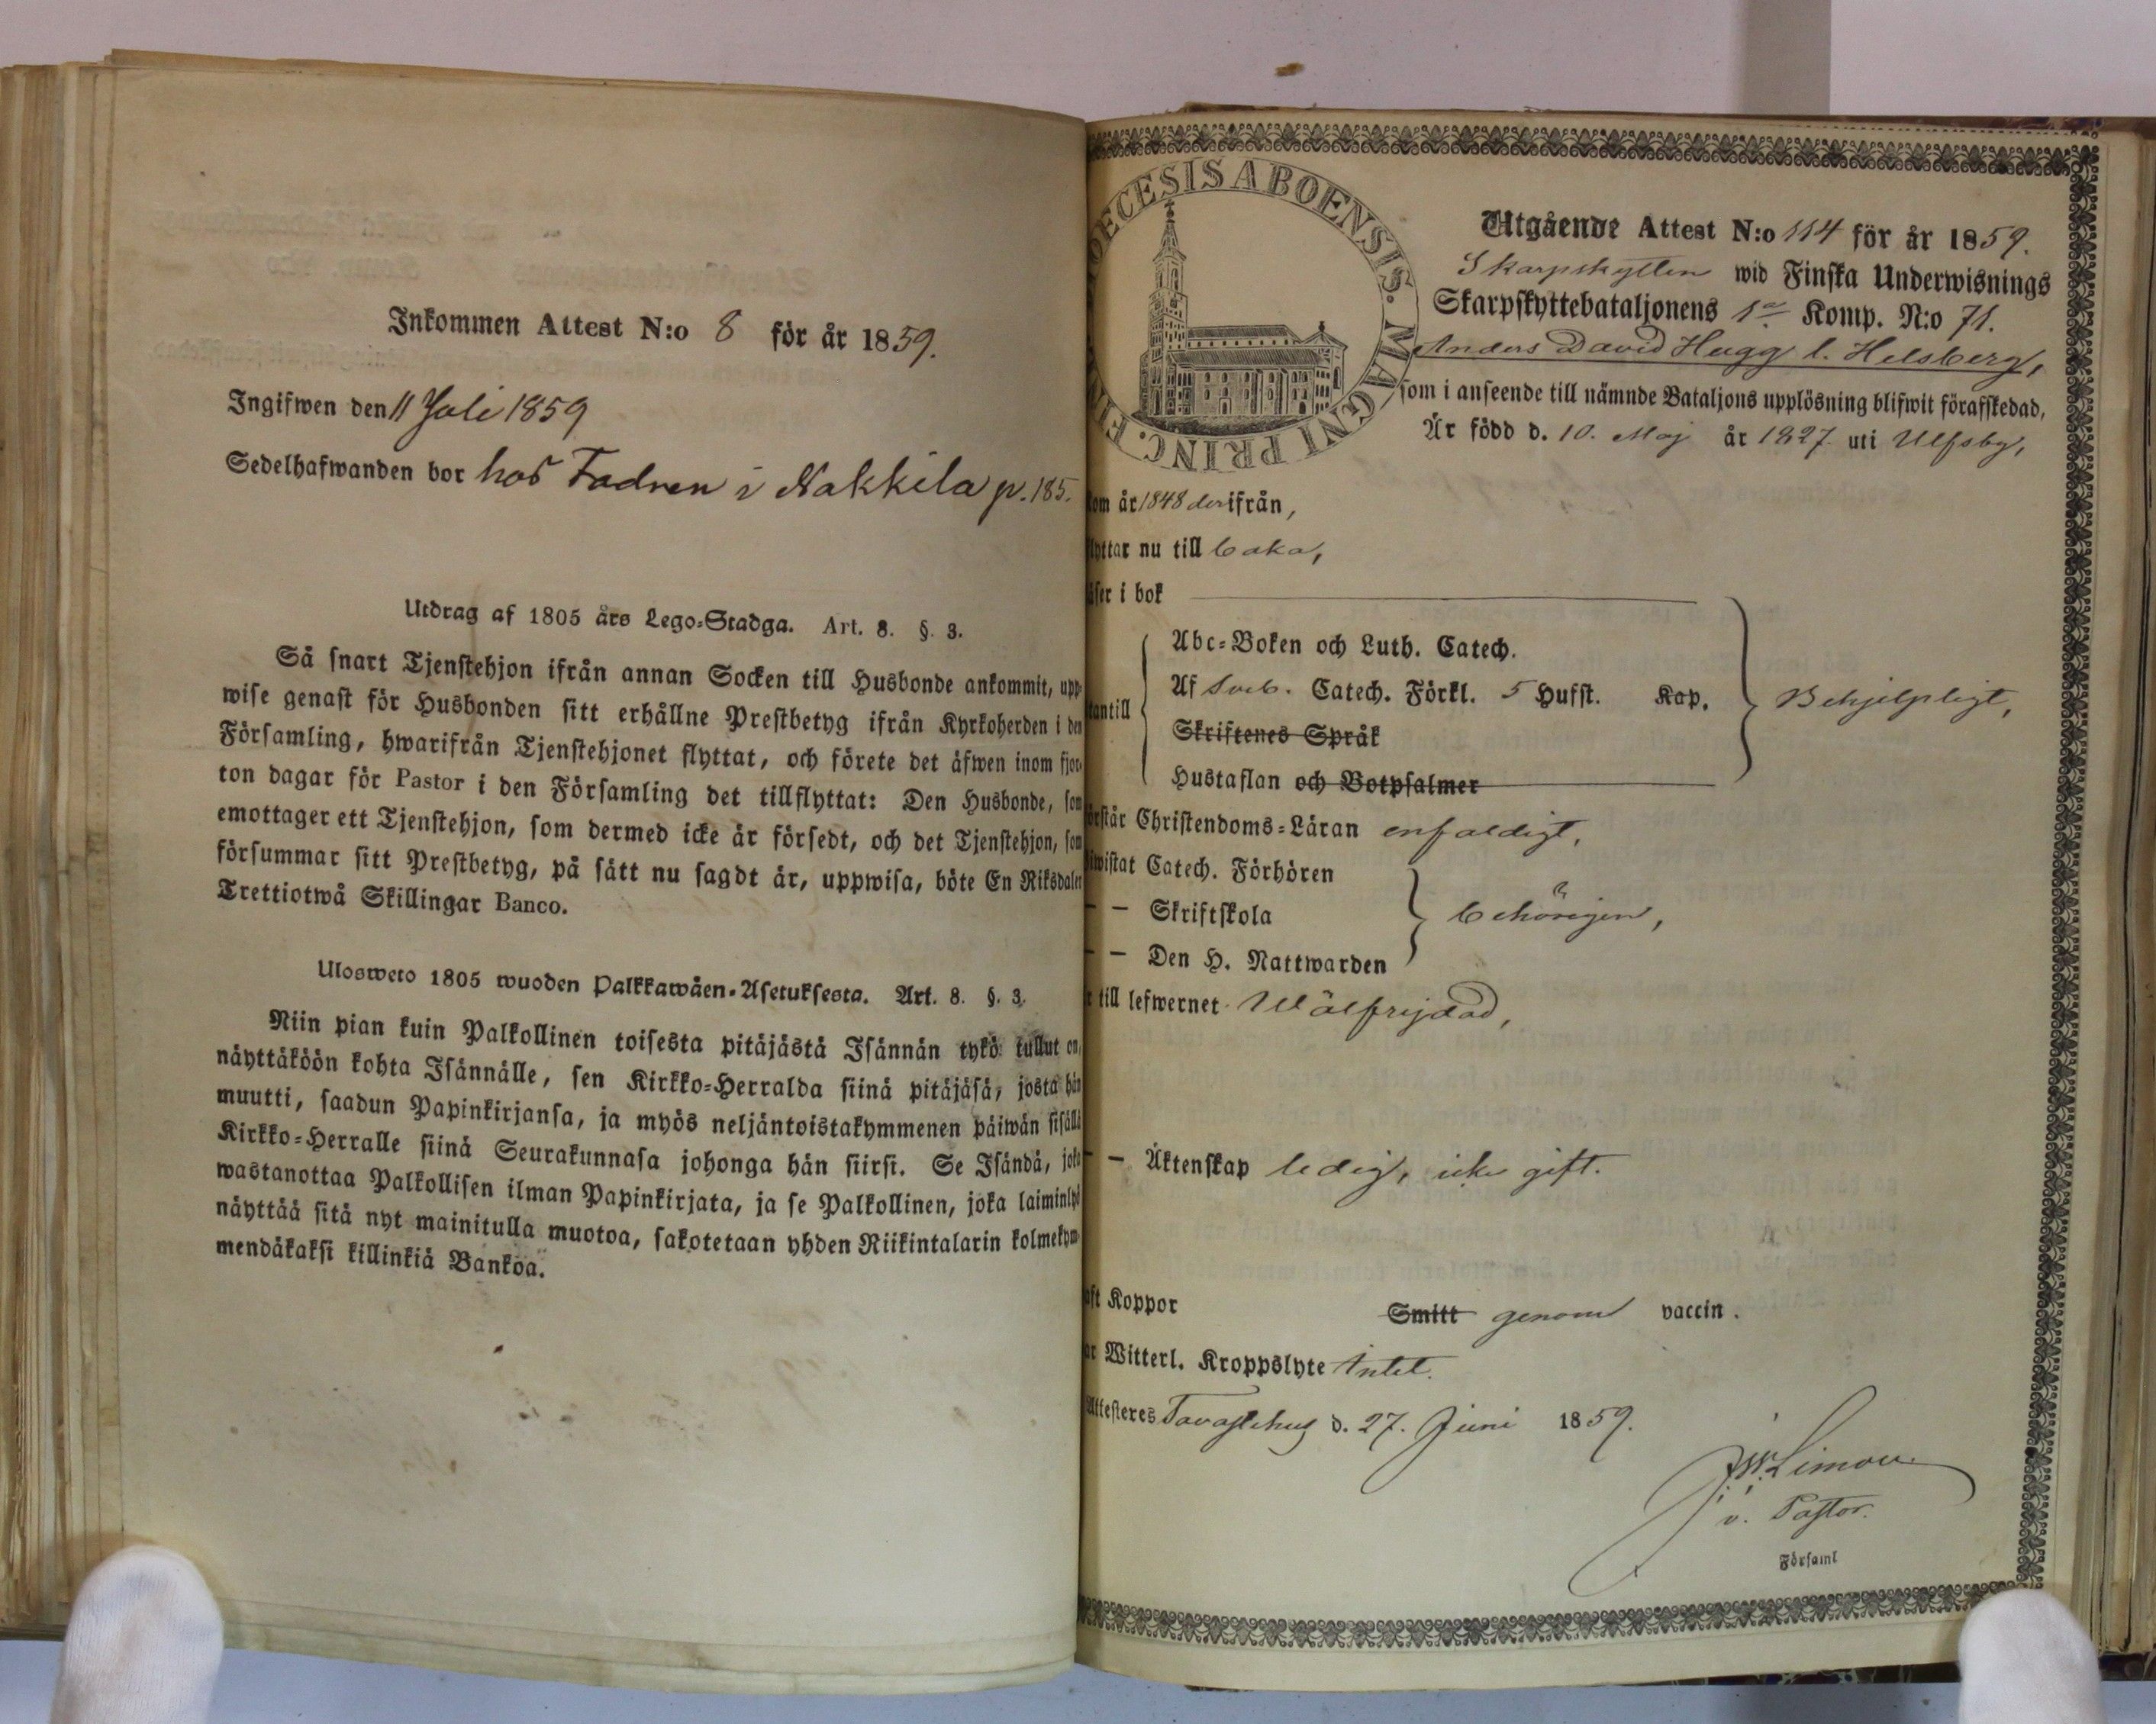 Inkommen Attest N:o 8 för år 1859.
Ingifwen den 11 Juli 1859
Sedelhafwanden bor hos Fadren i Nakkila p. 185.
Utdrag af 1805 års Lego-Stadga. Art. 8. §. 3.
Så snart Tjenstehjon ifrån annan Socken till Husbonde ankommit, upp-
wise genast för Husbonden sitt erhållne Prestbetyg ifrån Kyrkoherden i den
Församling, hwarifrån Tjenstehjonet flyttat, och förete det äfwen inom fjor-
ton dagar för Pastor i den Församling det tillflyttat: Den Husbonde, som
emottager ett Tjenstehjon, som dermed icke är försedt, och det Tjenstehjon, som
försummar sitt Prestbetyg, på sätt nu sagdt är, uppwisa, böte En Riksdaler
Trettiotwå Skillingar Banco.
Ulosweto 1805 wuoden Palkkawäen-Asetuksesta. Art. 8. §. 3.
Niin pian kuin Palkollinen toisesta pitäjästä Isännän tykö tullut on,
näyttäköön kohta Isännälle, sen Kirkko-Herralda siinä pitäjäsä, josta hän
muutti, saadun Papinkirjansa, ja myös neljäntoistakymmenen päiwän sisällä
Kirkko-Herralle siinä Seurakunnasa johonga hän siirsi. Se Isändä, joka
wastanottaa Palkollisen ilman Papinkirjata, ja se Palkollinen, joka laiminlyö
näyttää sitä nyt mainitulla muotoa, sakotetaan yhden Riikintalarin kolmekym-
mendäkaksi killinkiä Bankoa.
OECESIS ABOENSIS. MAGNI PRINC. FIN
Utgående Attest N:o 114 för år 1859.
Skarpskytten wid Finska Underwisnings
Skarpskyttebataljonens 1a Komp. N:o 71.
Anders David Hugg l. Helsberg,
som i anseende till nämnde Bataljons upplösning blifwit förafskedad,
Är född d. 10. Maj år 1827 uti Ulfsby,
kom år 1848 derifrån,
flyttar nu till baka,
läser i bok
Abc-Boken och Luth. Catech.
utantill Af Sveb. Catech. Förkl. 5 Hufst. Kap. Behjelpligt,
Skriftenes Språk
Hustaflan och Botpsalmer
förstår Christendoms-Läran enfaldigt,
biwistat Catech. Förhören
— — Skriftskola behörigen,
— — Den H. Nattwarden
är till lefwernet Wälfrejdad,
— — Äktenskap ledig, icke gift.
haft Koppor Smitt genom vaccin.
har Witterl. Kroppslyte Intet.
Attesteres Tavastehus d. 27. Juni 1859.
v. Pastor.
Församl